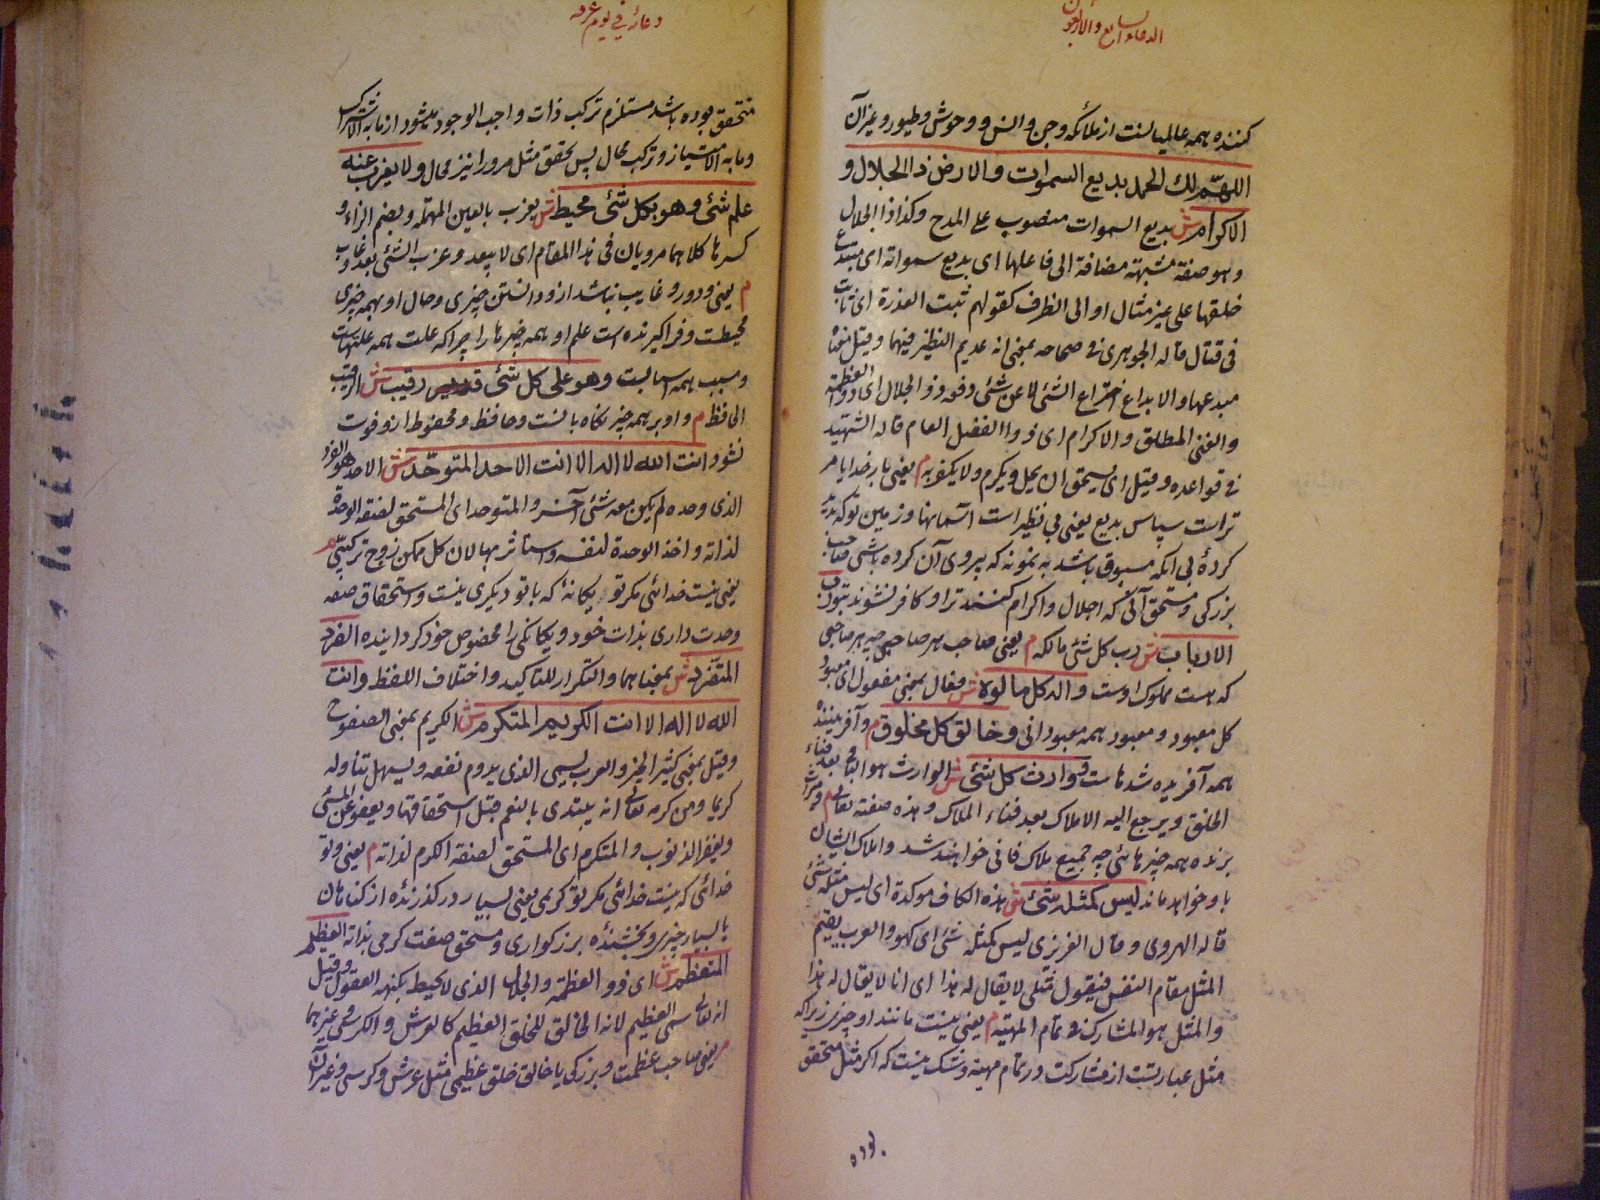 الدعاء السابع والأربعون
كننده همه عالمیانست از ملائکه وجن وانس و وحوش وطیور وغیر آن
اللهم لك الحمد بديع السموات والارض ذا الجلال و
الاكرام ش بديع السموات منصوب على المدح وكذا ذا الجلال
وهو صفة مشبهة مضافة الى فاعلها اى بديع سمواته اى مبتدع
خلقها على غير مثال او الى الظرف كقولهم ثبت الغدرة اى ثابت
فى قتال قاله الجوهرى فى صحاحه بمعنى انه عديم النظير فيهما وقيل معناه
مبدعهما والابداع اختراع الشئ لا عن شئ دفعة وذو الجلال اى ذو العظمة
والغنى المطلق والاكرام اى ذو الفضل العام قاله الشهيد
فى قواعده وقيل اى يستحق ان يجل ويكرم ولا يكفر به م يعنى بار خدايا مر
تراست سپاس بديع يعنى بی نظیر است آسمانها وزمین تو که پدید
کردهٔ بی آنکه مسبوق باشد به نمونه که پیروی آن کرده باشی صاحب
بزرکی ومستحق آنی که اجلال واکرام کنند ترا وکافر نشوند بتو رب
الارباب ش رب كل شئ مالكه م یعنی صاحب هر صاحبی چه هر صاحبی
که هست مملوک اوست واله كل مالوه ش فعال بمعنى مفعول اى معبود
كل معبود ومعبود همه معبودانی وخالق كل مخلوق م وآفریننده
همه آفریده شدهاست ووارث كل شئ ش الوارث هو الباقى بعد فناء
الخلق ويرجع اليه الاملاك بعد فناء الملاك وهذه صفته تعالى م ومیراث
برنده همه چیزهائی چه جمیع ملاک فانی خواهند شد واملاک ایشان
باو خواهد ماند ليس كمثله شئ ش هذه الكاف موكدة اى ليس مثله شئ
قاله الهروى وقال العزيزى ليس كمثله شئ اى كهو والعرب يقيم
المثل مقام النفس فيقول مثلى لا يقال له هذا اى انا لا يقال له هذا
والمثل هو المشارك فى تمام المهية م یعنی نیست مانند او چیزی زیرا که
مثل عبارتست از مشارکت در تمام مهیة وشک نیست که اکر مثل متحقق
بوده
دعائه في يوم عرفه
متحقق بوده باشد مستلزم ترکب ذات واجب الوجود میشود از ما به الاشتراک
وما به الامتیاز وترکب محال پس تحقق مثل مر ورا نیز محال ولا يعزب عنه
علم شئ وهو بكل شئ محيط ش يعزب بالعين المهملة وبضم الزاء و
كسرها كلاهما مرويان فى هذا المقام اى لا يبعد وعزب الشئ بعد وغاب
م یعنی ودور وغایب نباشد از و دانستن چیزی وحال او بهمه چیزی
محیطست وفراکیرنده است علم او بهمه چیزها را چراکه علت همه علتهاست
ومسبب همه اسبابست وهو على كل شئ رقيب ش الرقيب
الحافظ م واو بر همه چیز نکاه بانست وحافظ ومحفوظ از و فوت
نشود انت الله لا اله الا انت الاحد المتوحد ش الاحد هو الفرد
الذى وحده لم يكن معه شئ آخر والمتوحد اى المستحق لصفة الوحدة
لذاته واخذ الوحدة لنفسه واستاثر بها لان كل ممكن زوج تركيبى م
یعنی نیست خدائی مکر تو یکانهٔ که با تو دیکری نیست واستحقاق صفة
وحدت داری بذات خود ویکانکی را مخصوص خود کردانیده الفرد
المتفرد ش بمعناهما والتكرار للتاكيد واختلاف اللفظ وانت
الله لا اله الا انت الكريم المتكرم ش الكريم بمعنى الصفوح
وقيل بمعنى كثير الخير والعرب يسمى الذى يدوم نفعه ويسهل تناوله
كريما ومن كرمه تعالى انه يبتدى بالنعم قبل استحقاقها ويعفو عن المسئ
ويغفر الذنوب والمتكرم اى المستحق لصفة الكرم لذاته م یعنی وتو
خدائی که نیست خدائی مکر تو کریمی یعنی بسیار درکذرنده از کناهان
یا بسیار چیزی وبخشنده بزرکواری ومستحق صفت کرمی بذاته العظيم
المتعظم ش اى ذو العظمة والجلال الذى لا يحيط بكنهه العقول وقيل
انه تعالى سمى العظيم لانه الخالق للخلق العظيم كالعرش والكرسى وغيرهما
م یعنی صاحب عظمت وبزرکی یا خالق خلق عظیمی مثل عرش وکرسی وغیر آن